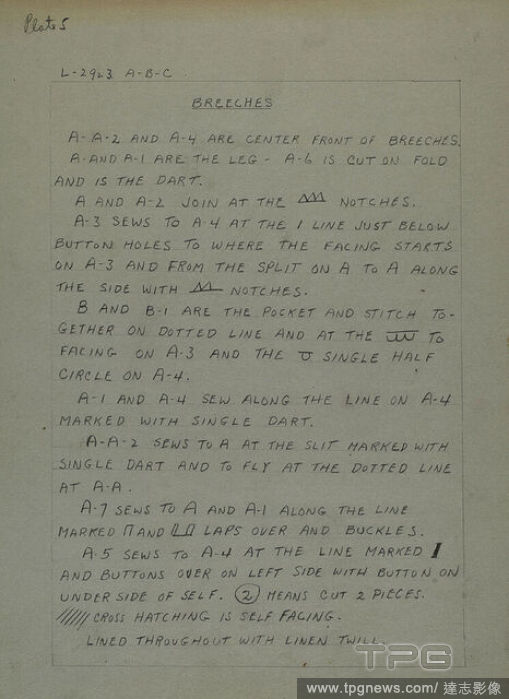 Plate 5
L-2923 A-B-C
BREECHES
A-A-2 AND A-4 ARE CENTER FRONT OF BREECHES.
A-AND A-1 ARE THE LEG - A-6 IS CUT ON FOLD
AND IS THE DART.
A AND A-2 JOIN AT THE NOTCHES.
A-3 SEWS TO A-4 AT THE 1 LINE JUST BELOW
BUTTON HOLES TO WHERE THE FACING STARTS
ON A-3 AND FROM THE SPLIT ON A TO A ALONG
THE SIDE WITH NOTCHES.
B AND B-1 ARE THE POCKET AND STITCH TO-
GETHER ON DOTTED LINE AND AT THE TO
FACING ON A-3 AND THE SINGLE HALF
CIRCLE ON A-4.
A-1 AND A-4 SEW ALONG THE LINE ON A-4
MARKED WITH SINGLE DART.
A-A-2 SEWS TO A AT THE SLIT MARKED WITH
SINGLE DART AND TO FLY AT THE DOTTED LINE
AT A-A.
A-7 SEWS TO A AND A-1 ALONG THE LINE
MARKED AND LAPS OVER AND BUCKLES.
A-5 SEWS TO A-4 AT THE LINE MARKED
AND BUTTONS OVER ON LEFT SIDE WITH BUTTON ON
UNDER SIDE OF SELF. (2) MEANS CUT 2 PIECES.
////// CROSS HATCHING IS SELF FACING.
LINED THROUGHOUT WITH LINEN TWILL.
TPG
www.tpgnews.com/達志影像